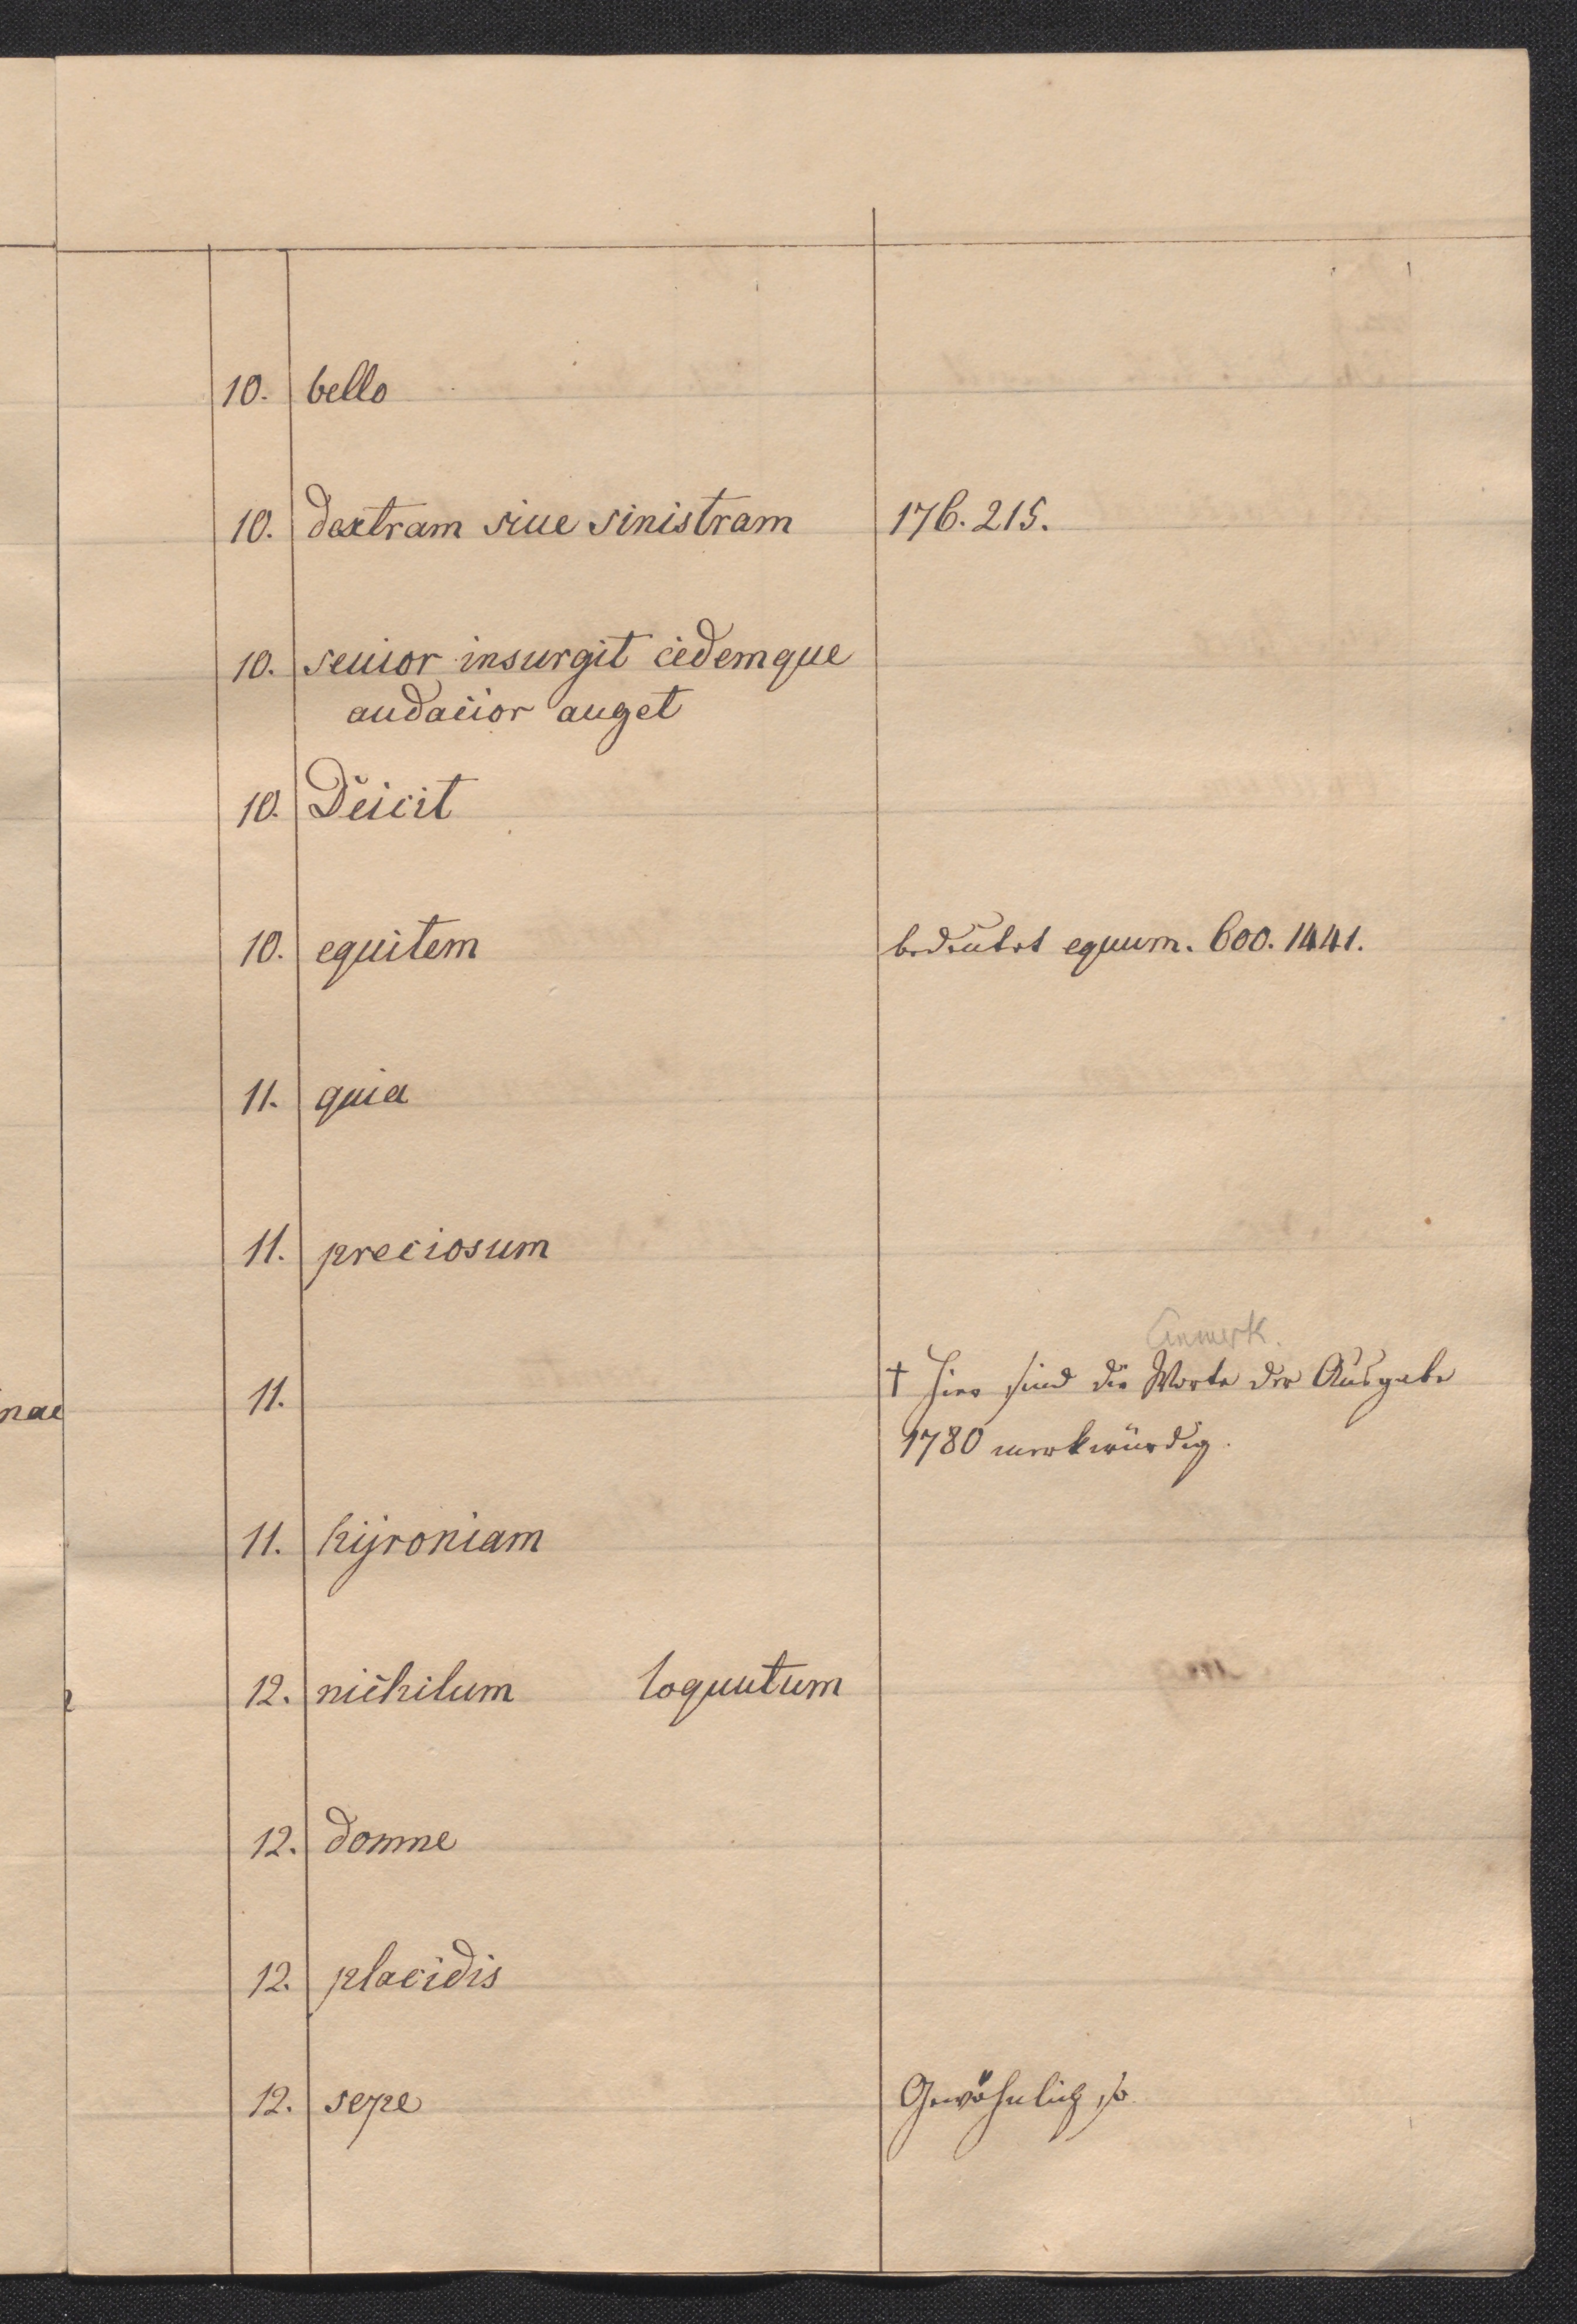 10. bello
10. dextram siue sinistram 176. 215.
10. seuior insurgit cedemque
audacior auget
10. Deicit
10. equitem bedeutet equum. 600. 1441.
11. quia
11. preciosum
Anmerk.
11. † Hier sind die Worte der Ausgabe
nae
1780 merkwürdig.
11. kijroniam
12. nichilum loquutum
12. domne
12. placidis
12. sepe Gewöhnlich so